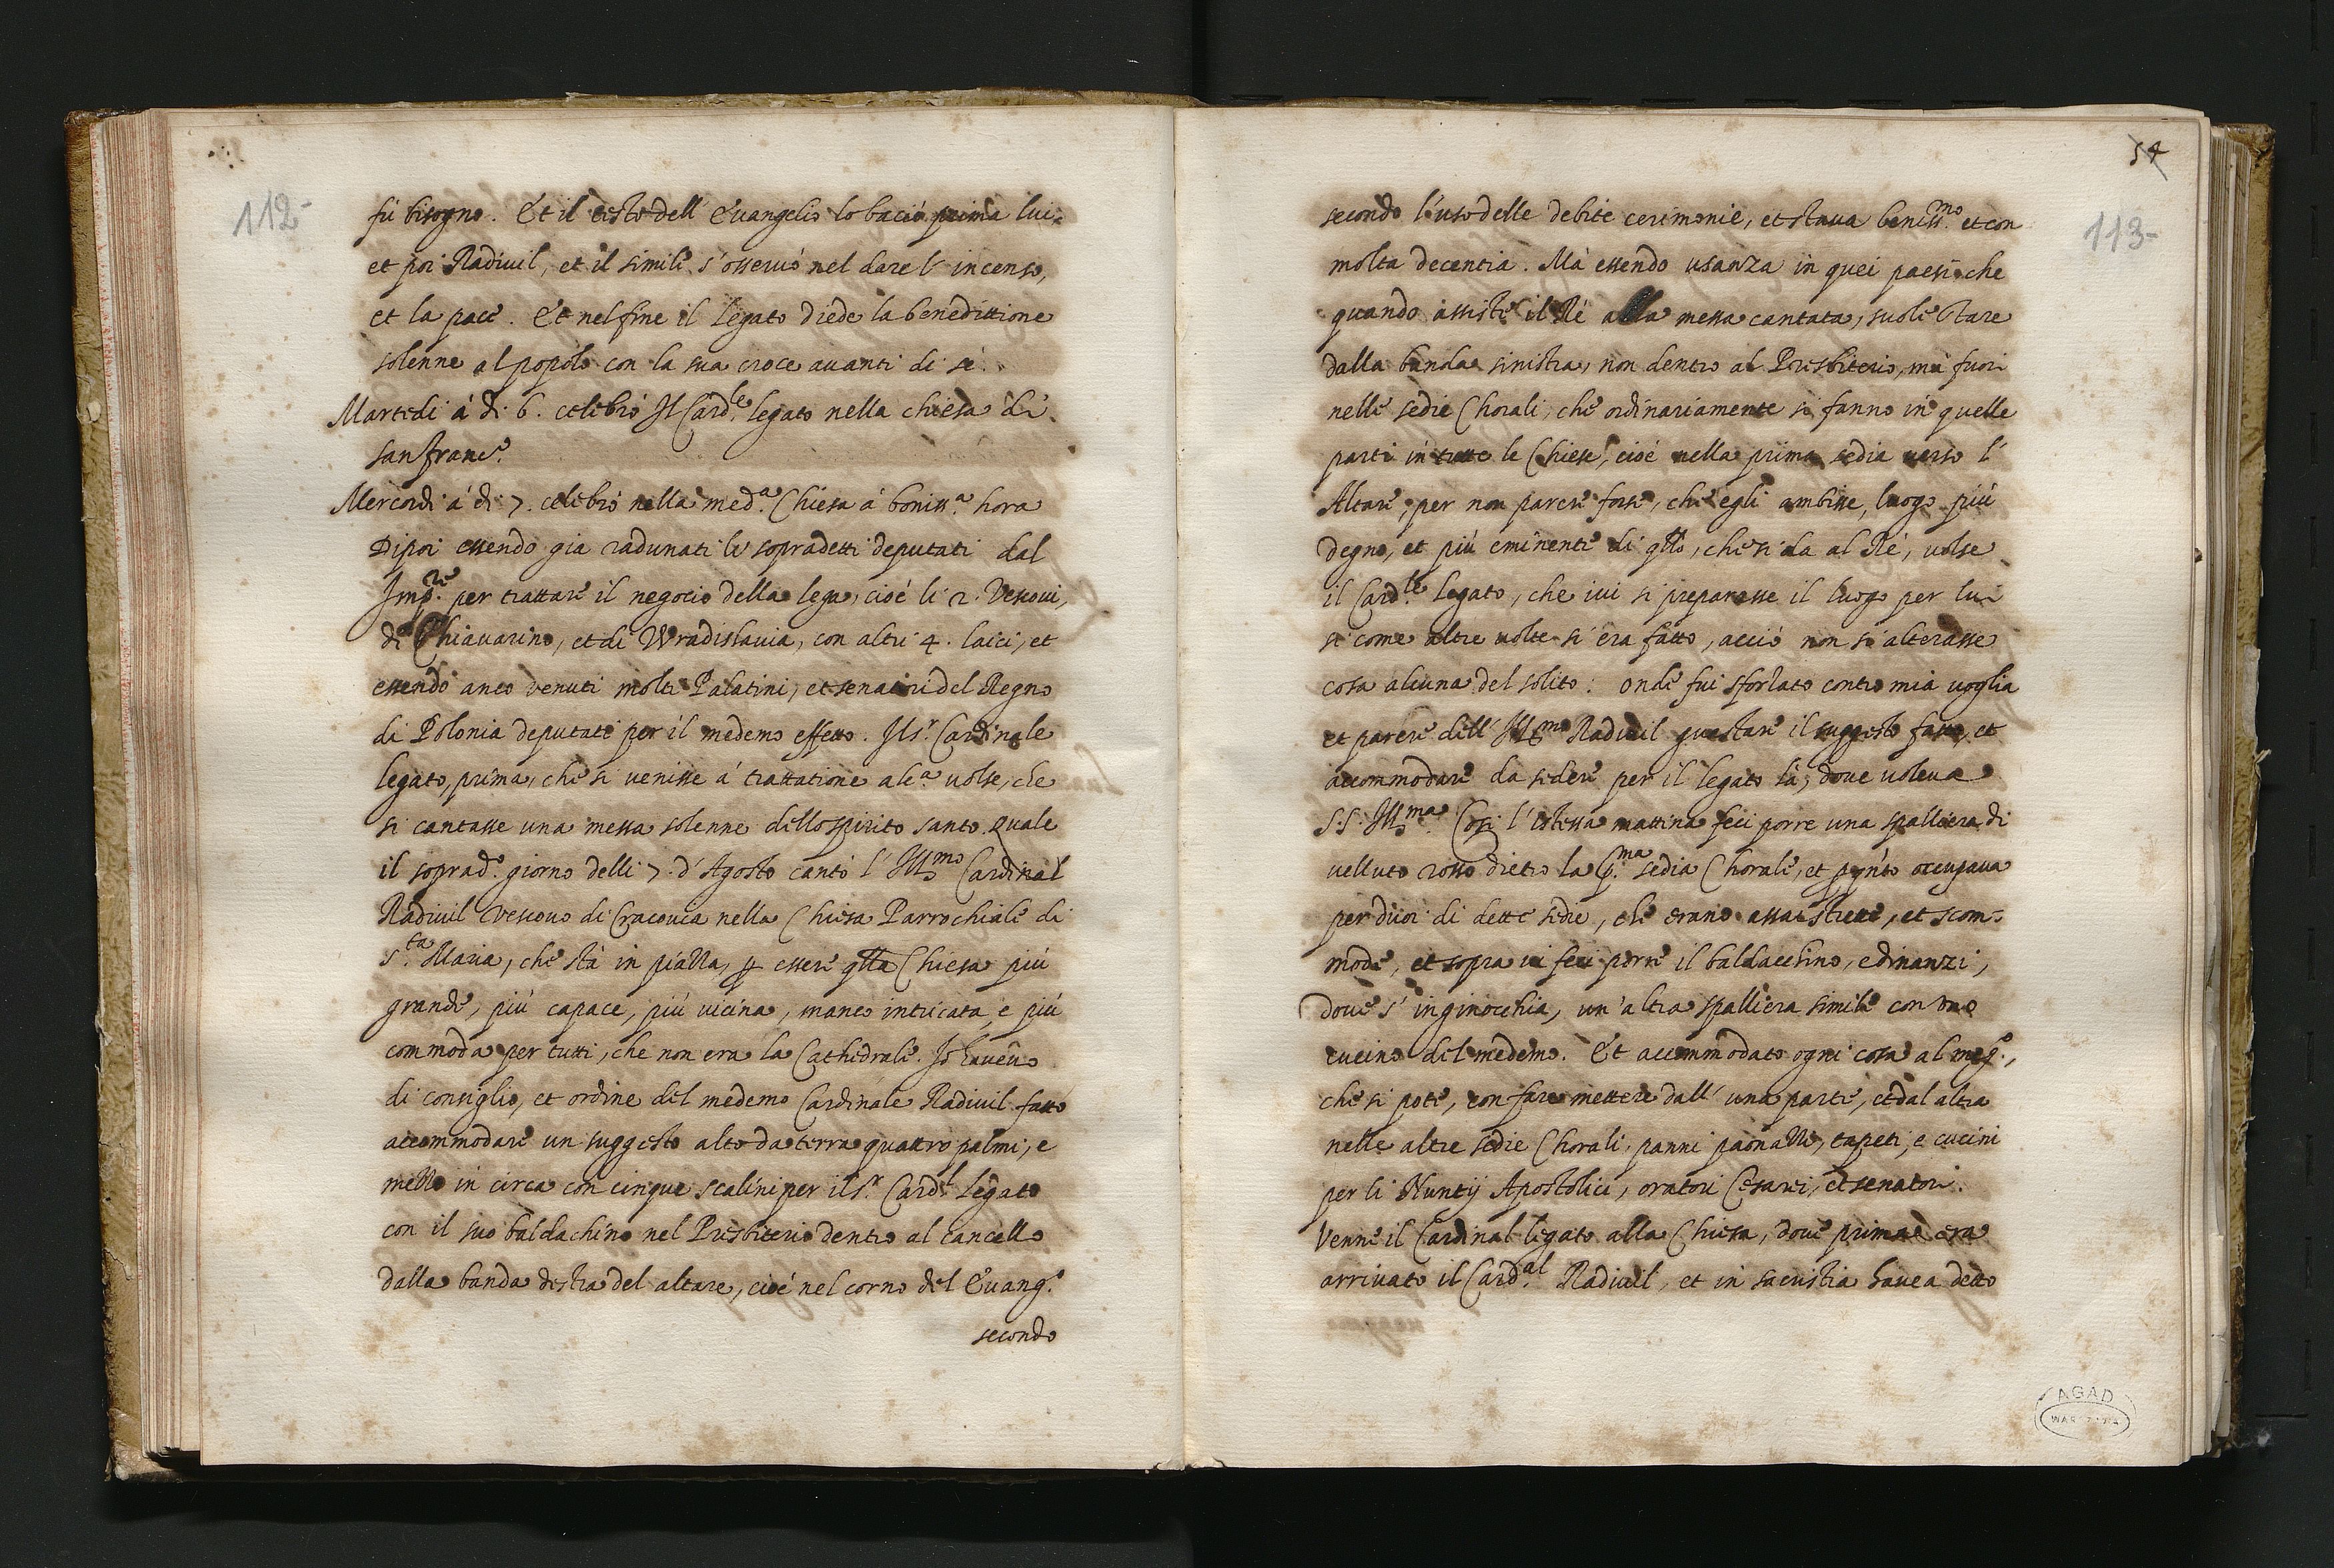 112-
fù bisogno. Et il testo dell' Euangelio lo baciò prima lui,
et poi Radiuil, et il simile s'osseruò nel dare l'incenso,
et la pace. Et nel fine il legato diede la benedittione
solenne al popolo con la sua croce auanti di sè.
Martedi à di 6. celebrò Il Card.le legato nella chiesa di
san franc.o
Mercordi à di 7. celebrò nella med.a Chiesa à boniss.a hora
Dipoi essendo gia radunati li sopradetti deputati dal
Imp.re per trattare il negocio della lega, cioè li 2. Vescoui,
di Chiauarino, et di Wradislauia, con altri 4. laici, et
essendo anco venuti molti Palatini, et senatori del Regno
di Polonia deputati per il medemo effetto. Il s.r Cardinale
legato, prima, che si venisse à trattatione alc.a uolse, che
si cantasse una messa solenne dello spirito santo. Quale
il soprad.o giorno delli 7. d'Agosto cantò l'Ill.mo Cardinal
Radiuil Vescouo di Cracouia nella Chiesa Parrochiale di
s.ta Maria, che stà in piazza, p essere qlla Chiesa più
grande, più capace, più uicina, manco intricata, e più
commoda per tutti, che non era la Cathedrale. Io haueuo
di consiglio, et ordine del medemo Cardinale Radiuil fatto
accommodare un suggesto alto da terra quattro palmi, e
mezzo in circa con cinque scalini per il s.r Card.l Legato
con il suo baldachino nel Presbiterio dentro al cancello
dalla banda destra del altare, cioè nel corno del Euang.o
secondo
54
113-
secondo l'uso delle debite cerimonie, et staua beniss.mo et con
molta decentia. Mà essendo usanza in quei paesi, che
quando assiste il Rè alla messa cantata, suole stare
dalla banda sinistra, non dentro al Presbiterio, mà fuori
nelle sedie Chorali, che ordinariamente si fanno in quelle
parti in tutte le Chiese, cioè nella prima sedia uerso l'
Altare, per non parere forse, che egli ambisse, luogo più
degno, et più eminente di qllo, che si da al Rè, uolse
il Card.le Legato, che iui si preparasse il luogo per lui
si come altre uolte si era fatto, acciò non si alterasse
cosa alcuna del solito: onde fui sforzato contro mia uoglia
et parere dell'Ill.mo Radiuil guastare il suggesto fatto, et
accommodare da sedere per il legato là, doue uoleua
S.S. Ill.ma Così l'istessa mattina feci porre una spalliera di
uelluto rosso dietro la p.ma sedia Chorale, et qnto occupaua
per duoi di dette sedie, che erano assai strette, et scom-
mode, et sopra ui feci porre il baldacchino, e dinanzi,
doue s'inginocchia, un'altra spalliera simile con uno
cucino del medemo. Et accommodato ogni cosa al meg.o,
che si potè, con fare mettere dall'una parte, et dal altra
nelle altre sedie Chorali, panni paonazzi, tapeti, e cucini
per li Nuntij Apostolici, oratori Cesarei, et senatori.
Venne il Cardinal legato alla Chiesa, doue prima era
arriuato il Card.al Radiuil, et in sacristia hauea detto
AGAD
WARSZAWA